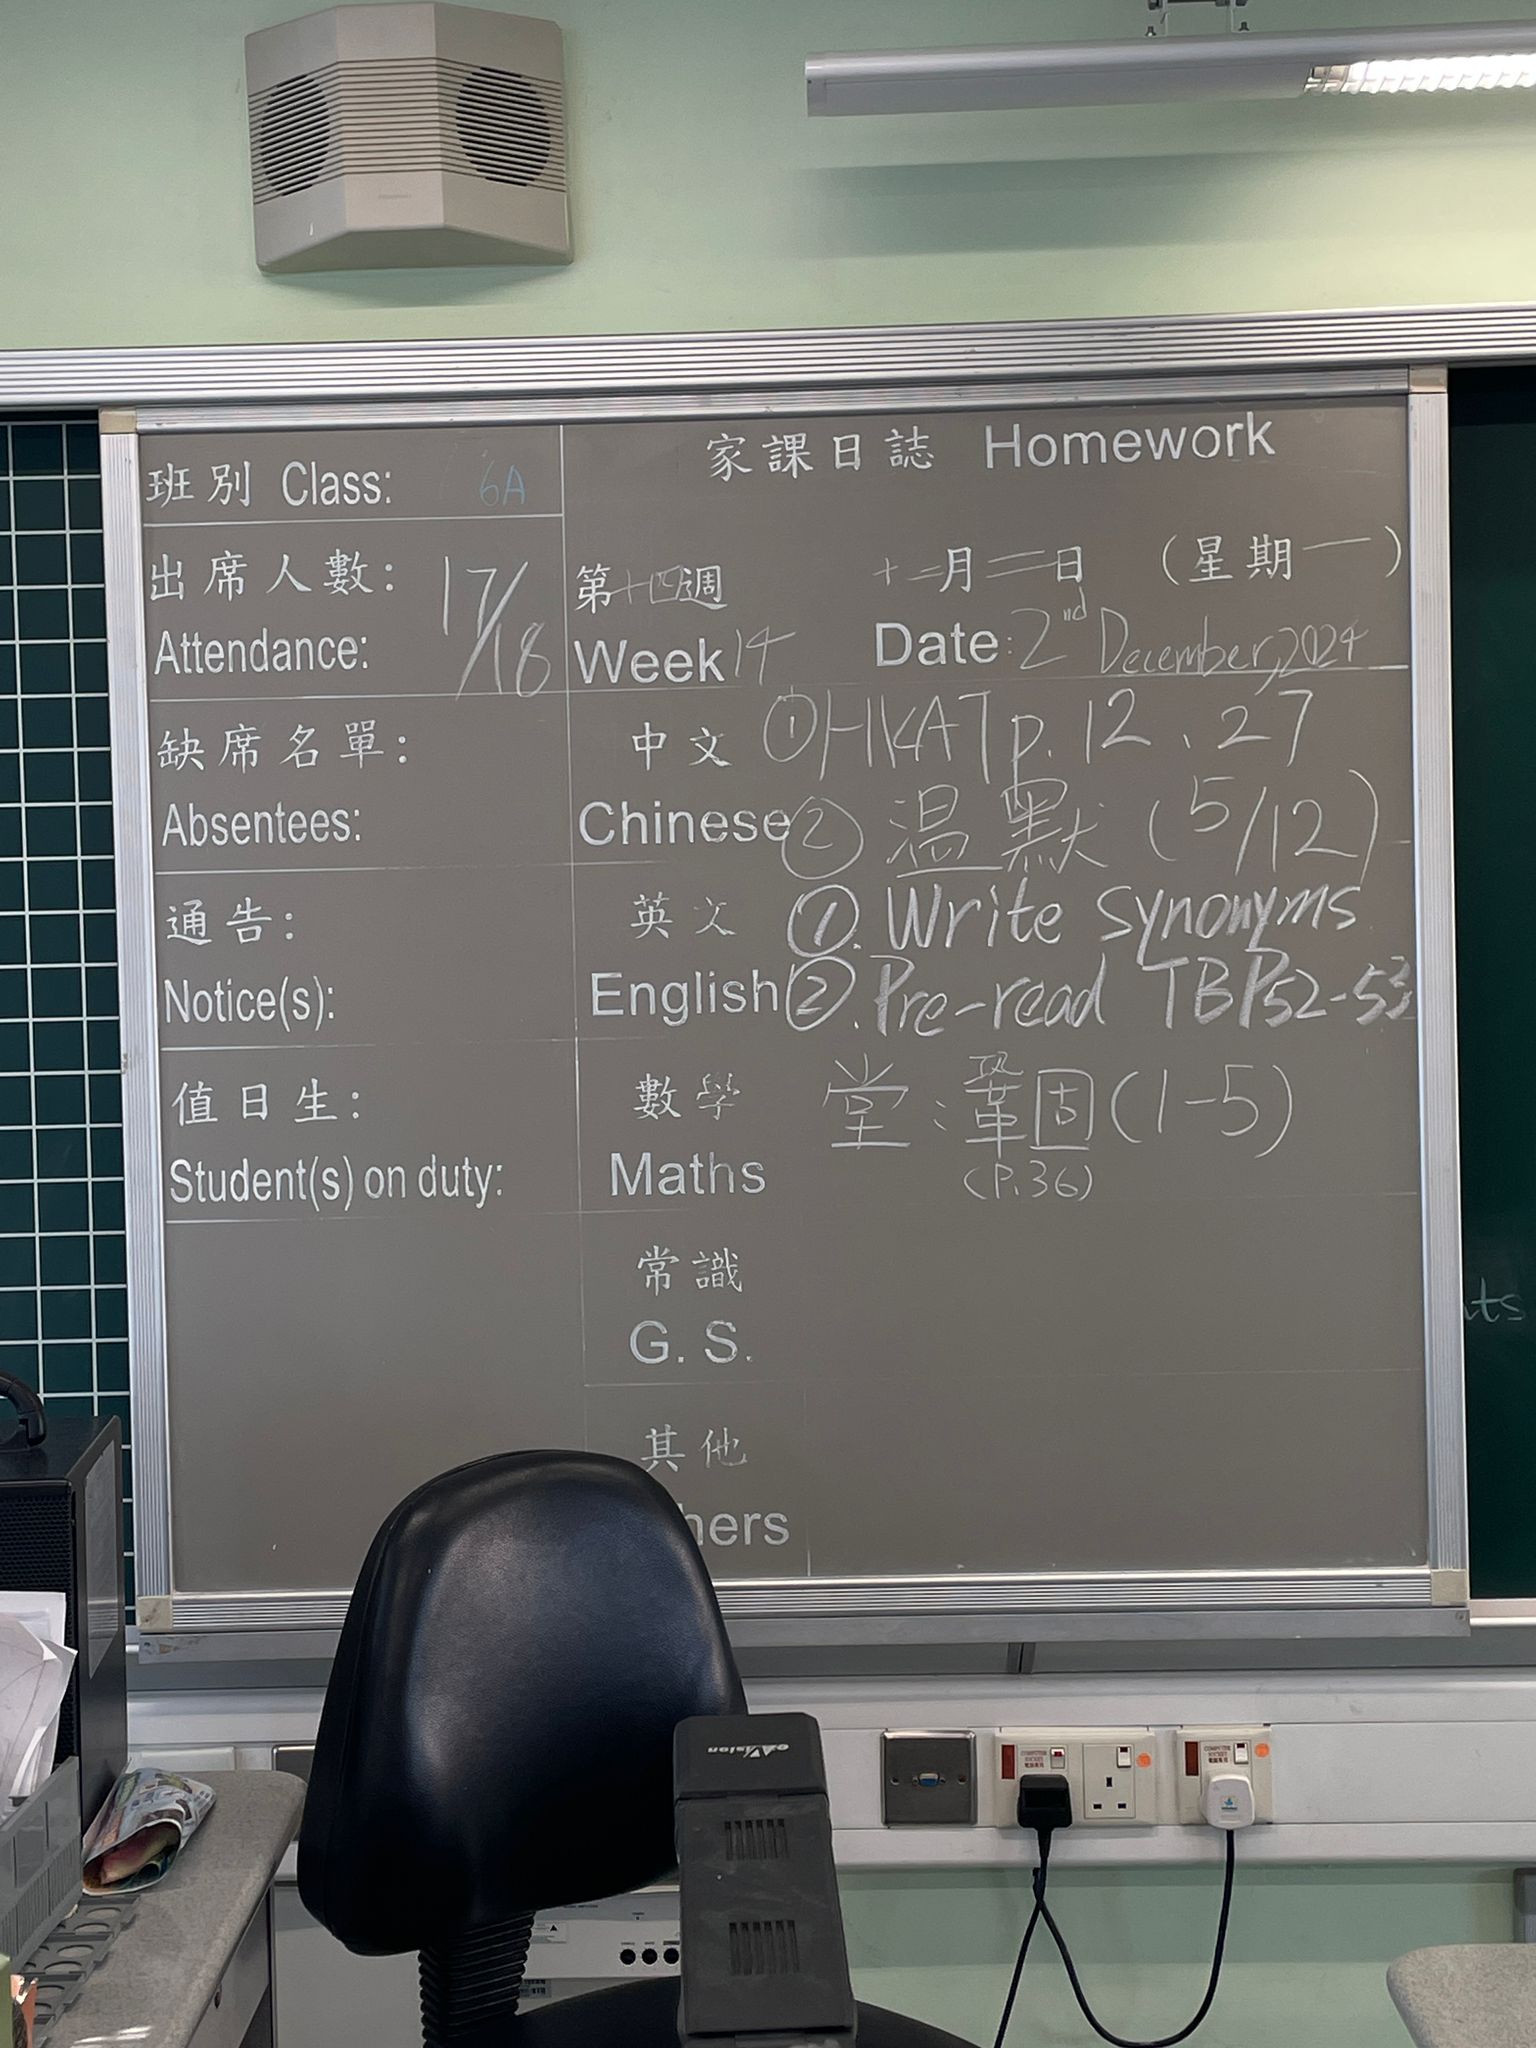 班別 Class: 6A
出席人數: 17/18
Attendance:
缺席名單:
Absentees:
通告:
Notice(s):
值日生:
Student(s) on duty:
家課日誌 Homework
第十四週 十二月二日 (星期一)
Week 14 Date: 2nd December, 2024
中文 ①HKAT p.12、27
Chinese ② 溫默 (5/12)
英文 ①. Write synonyms
English ②. Pre-read TBP52-53
數學 堂:鞏固(1-5)
Maths (P.36)
常識
G. S.
其他
hers
nts
COMPUTER SOCKET 電腦專用
COMPUTER SOCKET 電腦專用